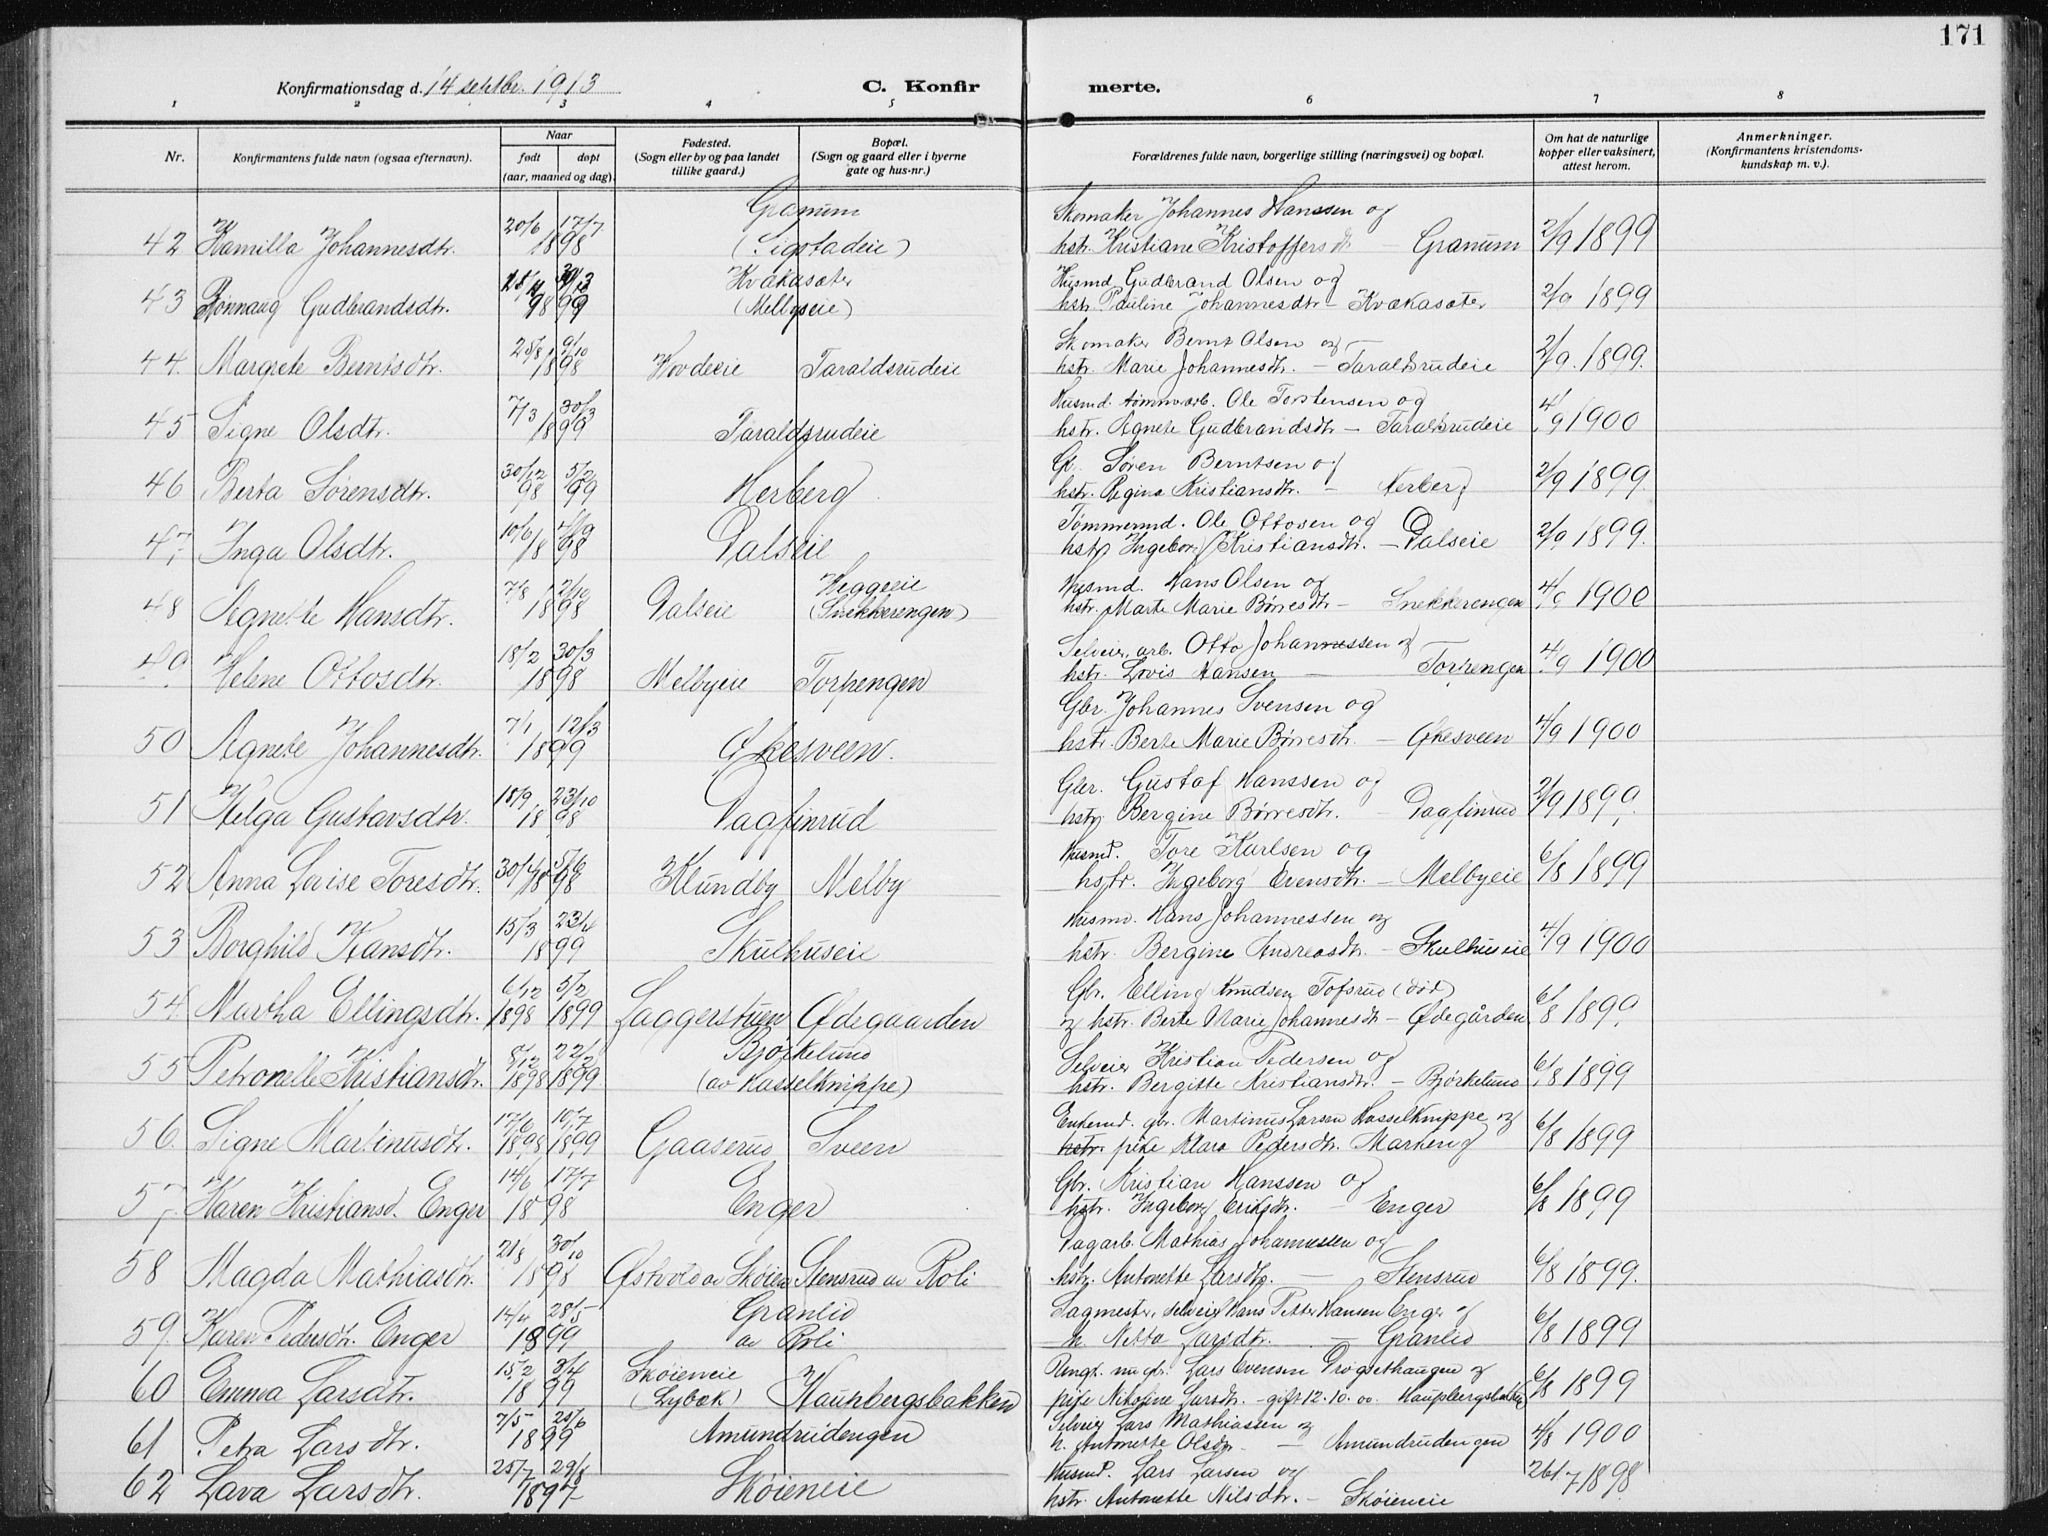 171
Konfirmationsdag d. 14 septbr. 1913
C. Konfir
merte.
1 2 3 4 5 6 7 8
Nr.
Konfirmantens fulde navn (ogsaa efternavn).
Naar
født døpt
(aar, maaned og dag).
Fødested.
(Sogn eller by og paa landet
tillike gaard.)
Bopæl.
(Sogn og gaard eller i byerne
gate og hus-nr.)
Forældrenes fulde navn, borgerlige stilling (næringsvei) og bopæl.
Om hat de naturlige
kopper eller vaksinert,
attest herom.
Anmerkninger.
(Konfirmantens kristendoms-
kundskap m. v.).
20/6 17/7 Granum Skomaker Johannes Hanssen og
42 Kamilla Johannesdtr. 1898 (Sigstadeie) hstr. Kristiane Kristoffersd. - Granum 2/9 1899
Kvækasæter Husmd. Gudbrand Olsen og
43 Rønnaug Gudbrandsdtr. 98 99 (Melbyseie) hstr. Pauline Johannesdtr - Kvækasæter 2/9 1899
25/8 9/10 Skomaker Bernt Olsen og
44. Margrete Berntsdtr. 1898 Hovdeeie Taraldsrudeie hstr. Marie Johannesdtr. - Taraldsrudeie 2/9. 1899.
7/3 30/3 Husmd. tømmarb. Ole Torstensen og
45 Signe Olsdtr. 1899 Taraldsrudeie hstr. Agnete Gudbrandsdtr - Taraldsrudeie 4/9 1900
30/12 5/2 Gb. Søren Berntsen og
46 Berta Sørensdtr. 98 99 Herberg hstr. Regina Kristiansdtr. - Herberg 2/9 1899.
10/6 Tømmermd. Ole Ottosen og
47. Inga Olsdtr. 1898 Dalseie hstr Ingeborg Kristiansdtr. - Dalseie 2/9 1899.
7/8 2/10 Heggeeie Husmd. Hans Olsen og
48 Agnethe Hansdtr. 1898 Dalseie (Snekkerengen) hstr. Marte Marie Børresdtr - Snekkerengen 4/9 1900
18/2 30/3 Selveier, arb. Otto Johannessen og
49. Helene Ottosdtr. 1898 Melbyeie Torpengen hstr. Lovis Hansen - Torpengen 4/9 1900
7/1 12/3 Gbr. Johannes Svensen og
50 Agnete Johannesdtr. 1899 Økesveen. hstr. Berte Marie Børresdtr. - Økesveen 4/9 1900
18/9 23/10 Gbr. Gustaf Hanssen og
51 Helga Gustavsdtr. 1898 Dagfinrud hstr Bergine Børresdtr. - Dagfinrud 2/9 1899.
30/4 Husmd. Tore Karlsen og
52 Anna Lovise Toresdtr. 1898 Klundby Melby hstr. Ingeborg Evensdtr. - Melbyeie 6/8 1899
15/3 23/4 Husmd. Hans Johannessen og
53 Borghild Hansdtr. 1899 Skulhuseie hstr. Bergine Andreasdtr. - Skulhuseie 4/9 1900
6/12 5/2 Gbr. Elling Knudsen Tofsrud (død)
54 Martha Ellingsdtr. 1898 1899 Laggerstuen Ødegaarden og hstr. Berte Marie Johannesdtr - Ødegården 6/8 1899.
8/12 22/2 Bjørkelund Selveier Kristian Pedersen og
55 Petronelle Kristiansdtr. 1898 1899 (av Kasselknippe) hstr. Bergitte Kristiansdtr. - Bjørkelund 6/8 1899
17/6 10/7 Enkemd. gbr. Martinus Larsen Kasselknippe og
56. Signe Martinusdtr. 1898 1899 Gaaserud Sveen hstr. pike Klara Pedersdtr. Markeng 6/8 1899
14/6 17/7 Gbr. Kristian Hanssen og
57. Karen Kristiansd. Enger 1898 Enger hstr. Ingeborg Eriksdtr. - Enger 6/8 1899
21/8 30/10 Dagarb. Mathias Johannessen og
58 Magda Mathiasdtr. 1898 Østvold av Skøien Stensrud av Roli hstr. Antonette Larsdtr. - Stensrud 6/8 1899.
14/4 28/5 Granlid Sagmester, selveier Hans Petter Hansen Enger og
59. Karen Pedersdtr. Enger 1899 av Roli h. Netta Larsdtr. - Granlid 6/8 1899
15/2 3/4 Skøieneie Ungk. nu gbr. Lars Evensen Drogsethaugen og
60 Emma Larsdtr. 1899 (Lybæk) Haugbergsbakken pike Nikoline Larsdtr. - gift 12.10.00. 6/8 1899
7/5 25/6 Selveier Lars Mathiassen og
61 Petra Larsdtr. 1899 Amundrudengen h. Antonette Olsdtr. - Amundrudengen 4/8 1900
25/7 29/8 Husmd. Lars Larsen og
62 Lava Larsdtr. 1897 Skøieneie hstr. Antonette Nilsdtr. - Skøieneie 26/7 1898